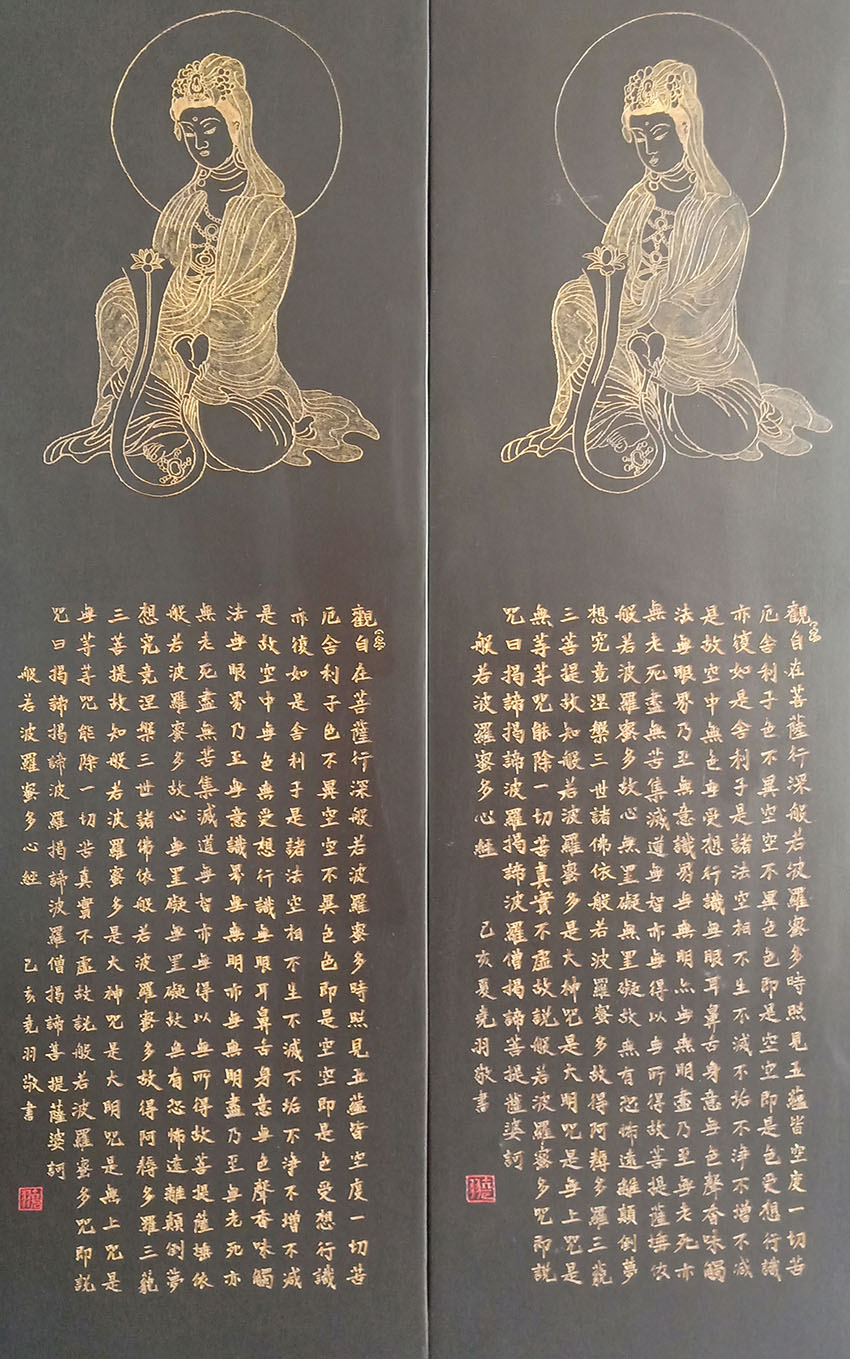 觀自在菩薩行深般若波羅蜜多時照見五蘊皆空度一切苦
厄舍利子色不異空空不異色色即是空空即是色受想行識
亦復如是舍利子是諸法空相不生不滅不垢不淨不增不減
是故空中無色無受想行識無眼耳鼻舌身意無色聲香味觸
法無眼界乃至無意識界無無明亦無無明盡乃至無老死亦
無老死盡無苦集滅道無智亦無得以無所得故菩提薩埵依
般若波羅蜜多故心無罣礙無罣礙故無有恐怖遠離顛倒夢
想究竟涅槃三世諸佛依般若波羅蜜多故得阿耨多羅三藐
三菩提故知般若波羅蜜多是大神咒是大明咒是無上咒是
無等等咒能除一切苦真實不虛故說般若波羅蜜多咒即說
咒曰揭諦揭諦波羅揭諦波羅僧揭諦菩提薩婆訶
般若波羅蜜多心經 己亥夏堯羽敬書
觀自在菩薩行深般若波羅蜜多時照見五蘊皆空度一切苦
厄舍利子色不異空空不異色色即是空空即是色受想行識
亦復如是舍利子是諸法空相不生不滅不垢不淨不增不減
是故空中無色無受想行識無眼耳鼻舌身意無色聲香味觸
法無眼界乃至無意識界無無明亦無無明盡乃至無老死亦
無老死盡無苦集滅道無智亦無得以無所得故菩提薩埵依
般若波羅蜜多故心無罣礙無罣礙故無有恐怖遠離顛倒夢
想究竟涅槃三世諸佛依般若波羅蜜多故得阿耨多羅三藐
三菩提故知般若波羅蜜多是大神咒是大明咒是無上咒是
無等等咒能除一切苦真實不虛故説般若波羅蜜多咒即説
咒曰揭諦揭諦波羅揭諦波羅僧揭諦菩提薩婆訶
般若波羅蜜多心經 己亥堯羽敬書